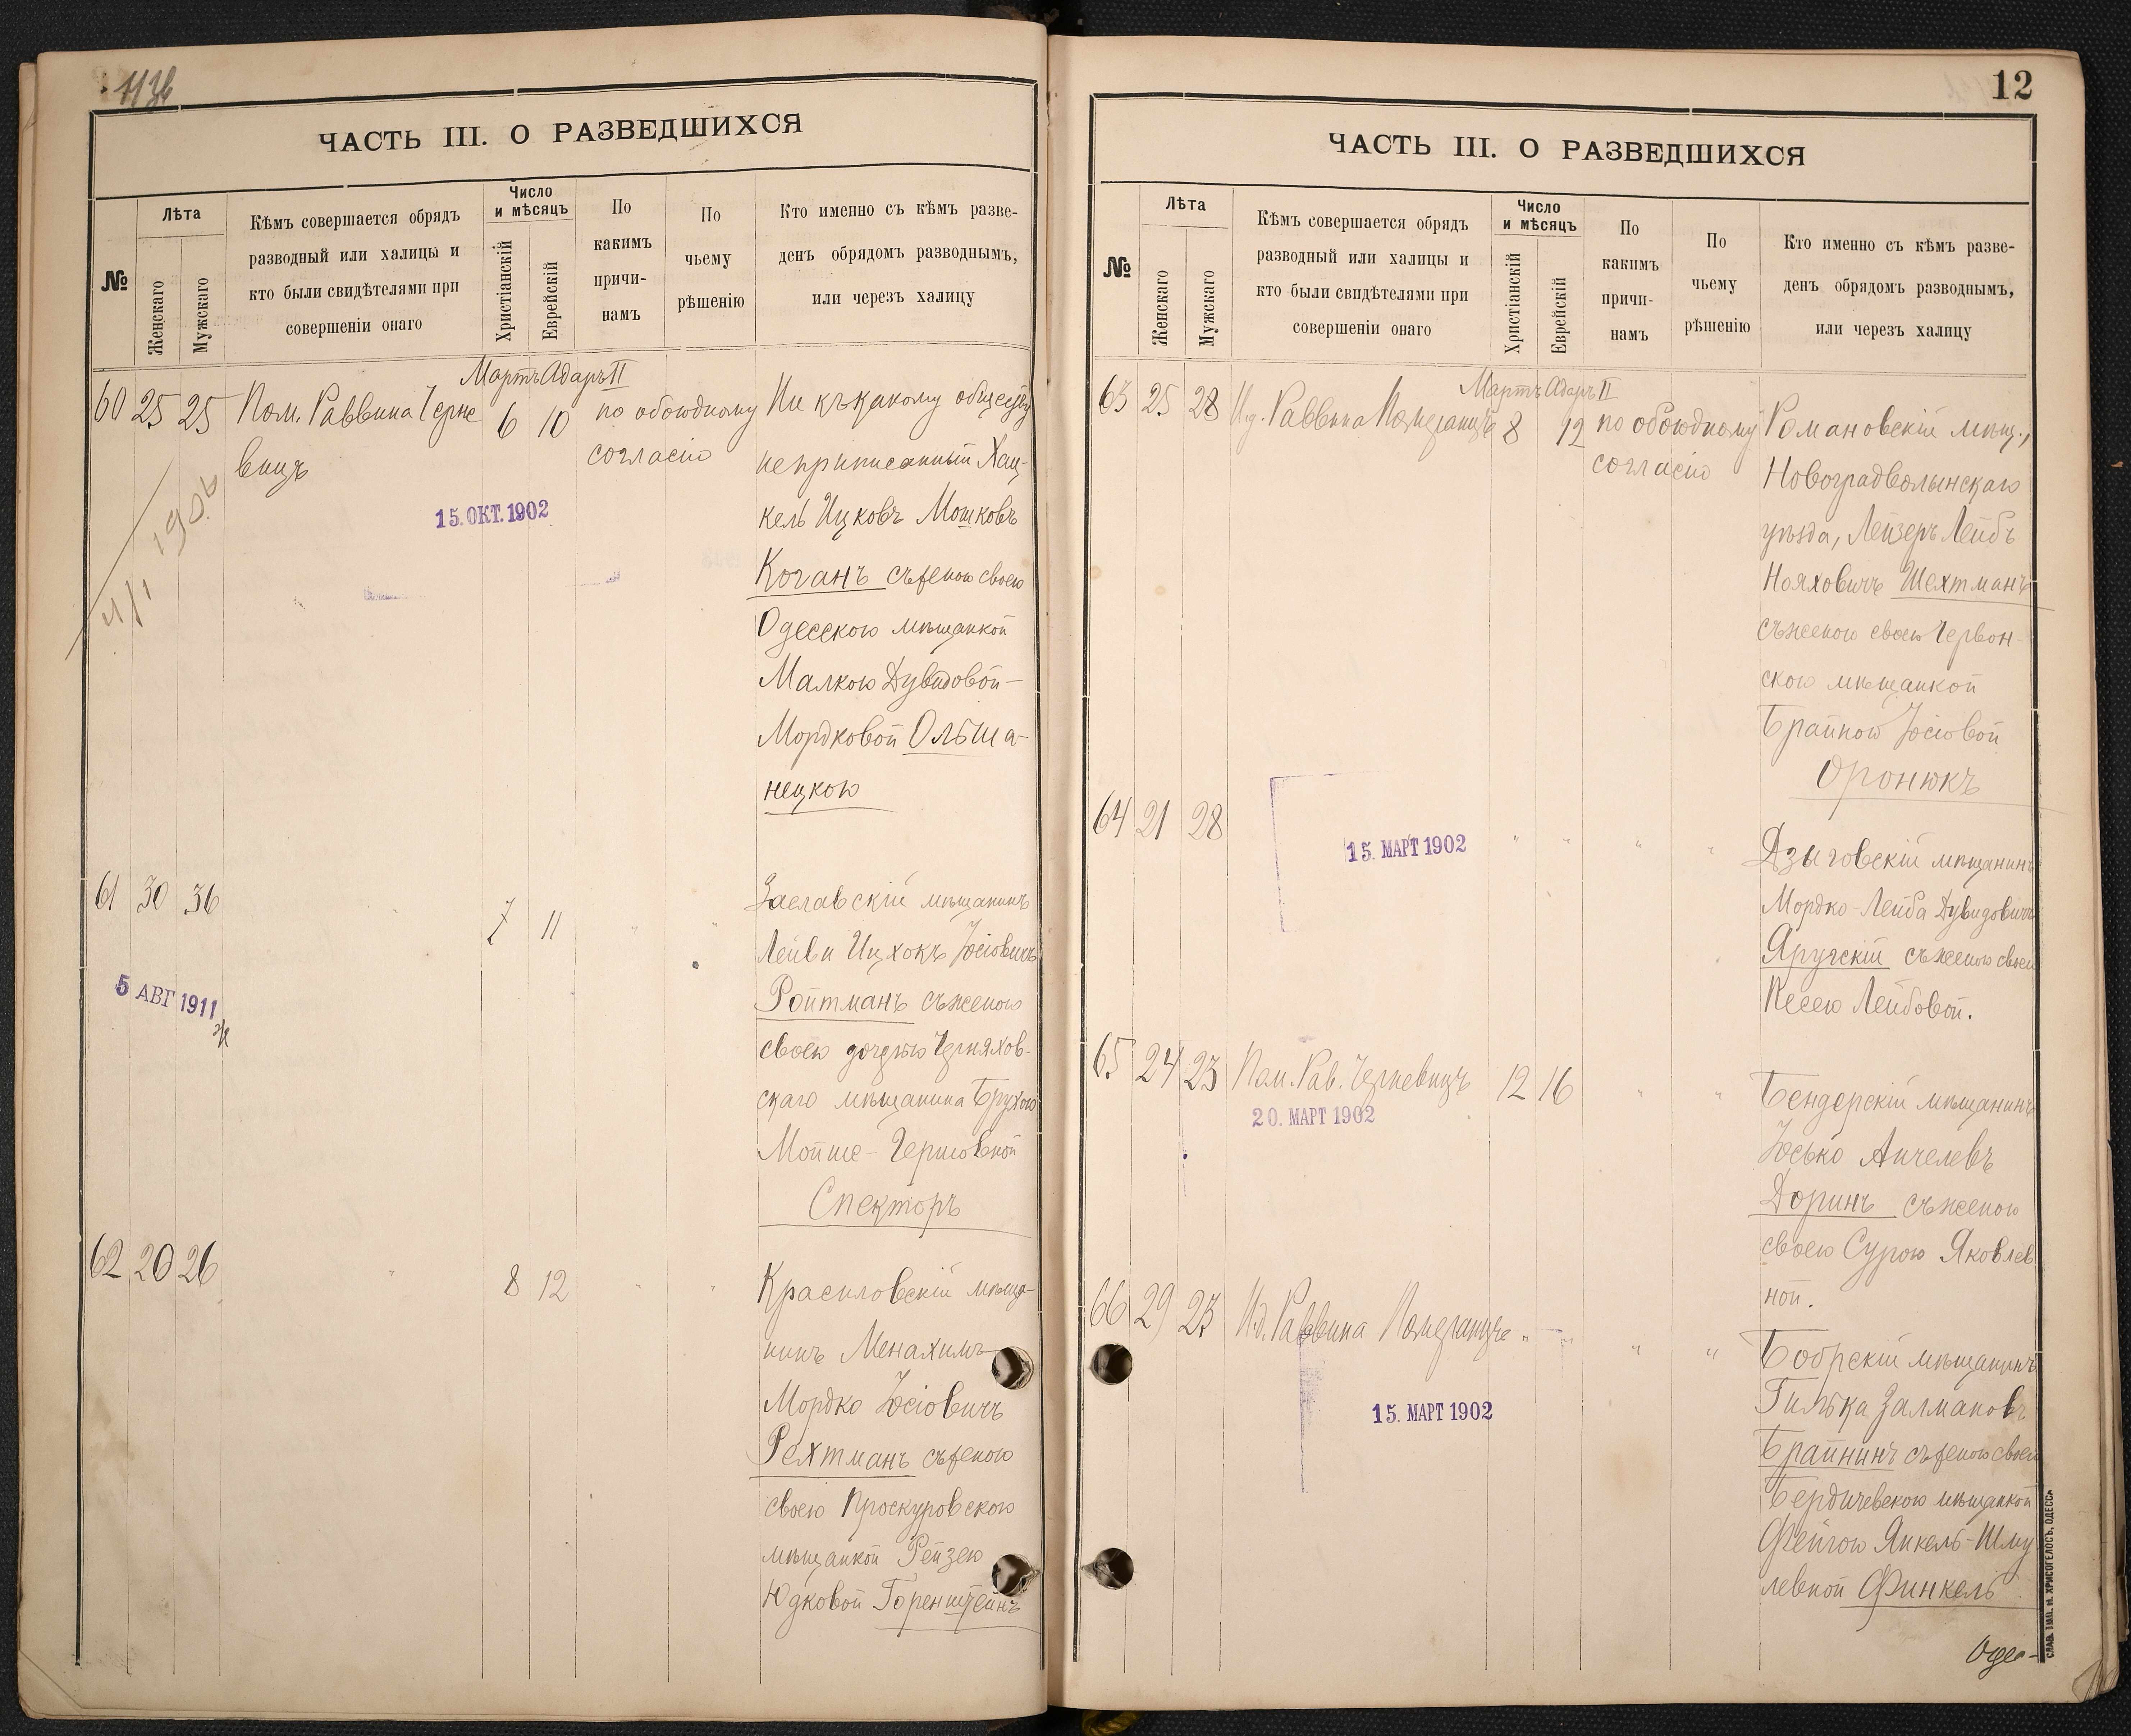 ЧАСТЬ III. О РАЗВЕДШИХСЯ
№
Лѣта
Женскаго
Мужскаго
Кѣмъ совершается обрядъ
разводный или халицы и
кто были свидѣтелями при
совершеніи онаго
Число
и мѣсяцъ
Христіанскій
Еврейскій
По
какимъ
причи-
намъ
По
чьему
рѣшенію
Кто именно съ кѣмъ разве-
денъ обрядомъ разводнымъ,
или черезъ халицу
Мартъ Адаръ II
60 25 25 Пом. Раввина Черне
вицъ
6 10 по обоюдному
согласію
Ни къ какому обществу
неприписанный Хац-
кель Ицковъ Мошковъ
Коганъ съ женою своею
Одесскою мѣщанкой
Малкою Дувидовой-
Мордковой Ольша-
нецкою
15. ОКТ. 1902
61 30 36 7 11 " "
Заславскій мѣщанинъ
Лейви Ицхокъ Іосіовичъ
Ройтманъ съ женою
своею дочерью Черняхов-
скаго мѣщанина Брухою
Мойше-Гершовной
Спекторъ
5 АВГ 1911
62 20 26 " 8 12 " "
Красиловскій мѣща-
нинъ Менахимъ
Мордко Іосіовичъ
Рехтманъ съ женою
своею Проскуровскою
мѣщанкой Рейзею
Юдковой Горенштейнъ
12
ЧАСТЬ III. О РАЗВЕДШИХСЯ
№
Лѣта
Женскаго
Мужскаго
Кѣмъ совершается обрядъ
разводный или халицы и
кто были свидѣтелями при
совершеніи онаго
Число
и мѣсяцъ
Христіанскій
Еврейскій
По
какимъ
причи-
намъ
По
чьему
рѣшенію
Кто именно съ кѣмъ разве-
денъ обрядомъ разводнымъ,
или черезъ халицу
Мартъ Адаръ II
63 25 28 И.д. Раввина Померанцъ 8 12 по обоюдному
согласію
Романовскій мѣщ.,
Новоградволынскаго
уѣзда, Лейзеръ Лейбъ
Нояховичъ Шехтманъ
съ женою своею Червон-
скою мѣщанкой
Брайною Іосіовой
Оронюкъ
64 21 28 " " " "
15. МАРТ 1902
Дзыговскій мѣщанинъ
Мордко-Лейба Дувидовичъ
Яругскій съ женою своею
Песею Лейбовой.
65 24 23 Пом. Рав. Черневицъ 12 16 " "
20. МАРТ 1902
Бендерскій мѣщанинъ
Іосько Анчелевъ
Доринъ съ женою
своею Сурою Яковлев
ной.
66 29 23 И.д. Раввина Померанцъ " " " "
15. МАРТ 1902
Бобрскій мѣщанинъ
Гилька Залмановъ
Брайнинъ съ женою своею
Бердичевскою мѣщанкой
Фейгою Янкель-Шму
левной Финкель
Одес-
СЛАВ. ТИП. Н. ХРИСОГЕЛОСЪ, ОДЕССА